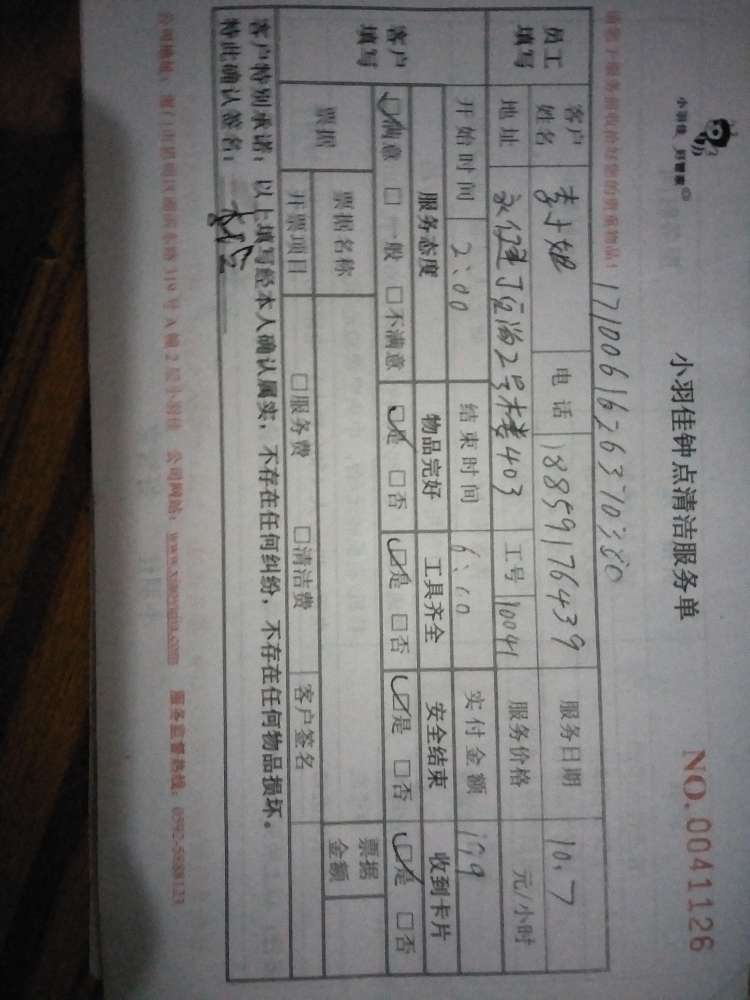 小羽佳 好管家
小羽佳钟点清洁服务单
NO.0041126
17100616263710380
员工填写 客户姓名 李小姐 电话 18859176439 服务日期 10.7
地址 2号楼403 工号 10041 服务价格 元/小时
客户填写 开始时间 2:00 结束时间 6:10 实付金额 179
服务态度 物品完好 工具齐全 安全结束 收到卡片
☑满意 □一般 □不满意 ☑是 □否 ☑是 □否 ☑是 □否 ☑是 □否
票据 票据名称 票据金额
开票项目 □服务费 □清洁费 客户签名
客户特别承诺:以上填写经本人确认属实,不存在任何纠纷,不存在任何物品损坏。
特此确认签名:
公司地址:厦门市 319号A幢2层小羽佳 公司网站:www.xiaoyujia.com 服务监督热线:0592-5688123